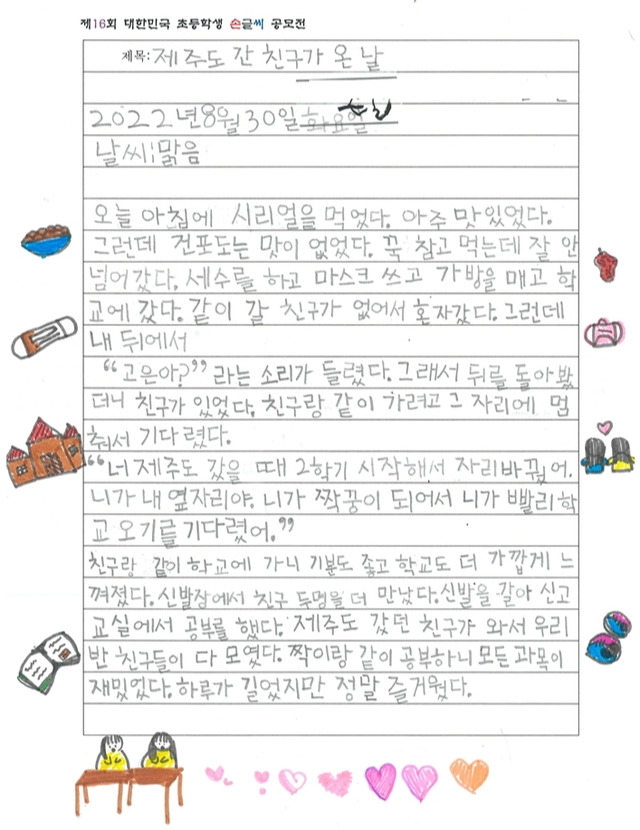 제16회 대한민국 초등학생 손글씨 공모전
제목: 제주도 간 친구가 온 날
2022년 8월 30일 화요일
날씨: 맑음
오늘 아침에 시리얼을 먹었다. 아주 맛있었다.
그런데 건포도는 맛이 없었다. 꾹 참고 먹는데 잘 안
넘어갔다. 세수를 하고 마스크 쓰고 가방을 매고 학
교에 갔다. 같이 갈 친구가 없어서 혼자갔다. 그런데
내 뒤에서
“고은아?” 라는 소리가 들렸다. 그래서 뒤를 돌아봤
더니 친구가 있었다. 친구랑 같이 가려고 그 자리에 멈
춰서 기다렸다.
“너 제주도 갔을 때 2학기 시작해서 자리바꿨어.
니가 내 옆자리야. 니가 짝꿍이 되어서 니가 빨리 학
교 오기를 기다렸어.”
친구랑 같이 학교에 가니 기분도 좋고 학교도 더 가깝게 느
껴졌다. 신발장에서 친구 두명을 더 만났다. 신발을 갈아 신고
교실에서 공부를 했다. 제주도 갔던 친구가 와서 우리
반 친구들이 다 모였다. 짝이랑 같이 공부하니 모든 과목이
재밌었다. 하루가 길었지만 정말 즐거웠다.